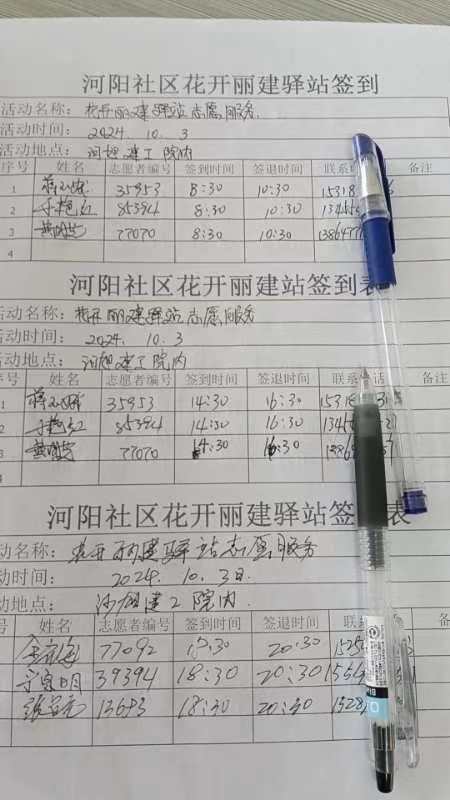 河阳社区花开丽建驿站签到
活动名称: 花开丽建驿站志愿服务
活动时间: 2024. 10. 3
活动地点: 河阳建工院内
姓名 志愿者编号 签到时间 签退时间 联系 备注
1 35953 8:30 10:30 15318
2 85394 8:30 10:30 1345
3 77070 8:30 10:30 13864
4
河阳社区花开丽建驿站签到表
活动名称: 花开丽建驿站志愿服务
活动时间: 2024. 10. 3
活动地点: 河阳建工院内
序号 姓名 志愿者编号 签到时间 签退时间 联系 话 备注
1 35953 14:30 16:30 1531
2 85394 14:30 16:30 1345
3 77070 14:30 16:30 1386
河阳社区花开丽建驿站签到表
动名称: 花开丽建驿站志愿服务
动时间: 2024. 10. 3日
动地点: 河阳建工院内
号 姓名 志愿者编号 签到时间 签退时间 联系 备
77092 18:30 20:30 1525
39394 18:30 20:30 1556
张 13653 18:30 20:30 1528